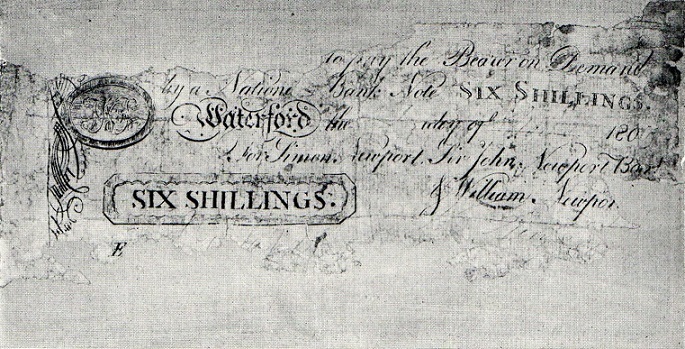 to pay the Bearer on Demand
by a Nationl Bank Note SIX SHILLINGS.
Waterford the day of 180
For Simon Newport, Sir John Newport Bart
& William Newpor
SIX SHILLINGS.
E